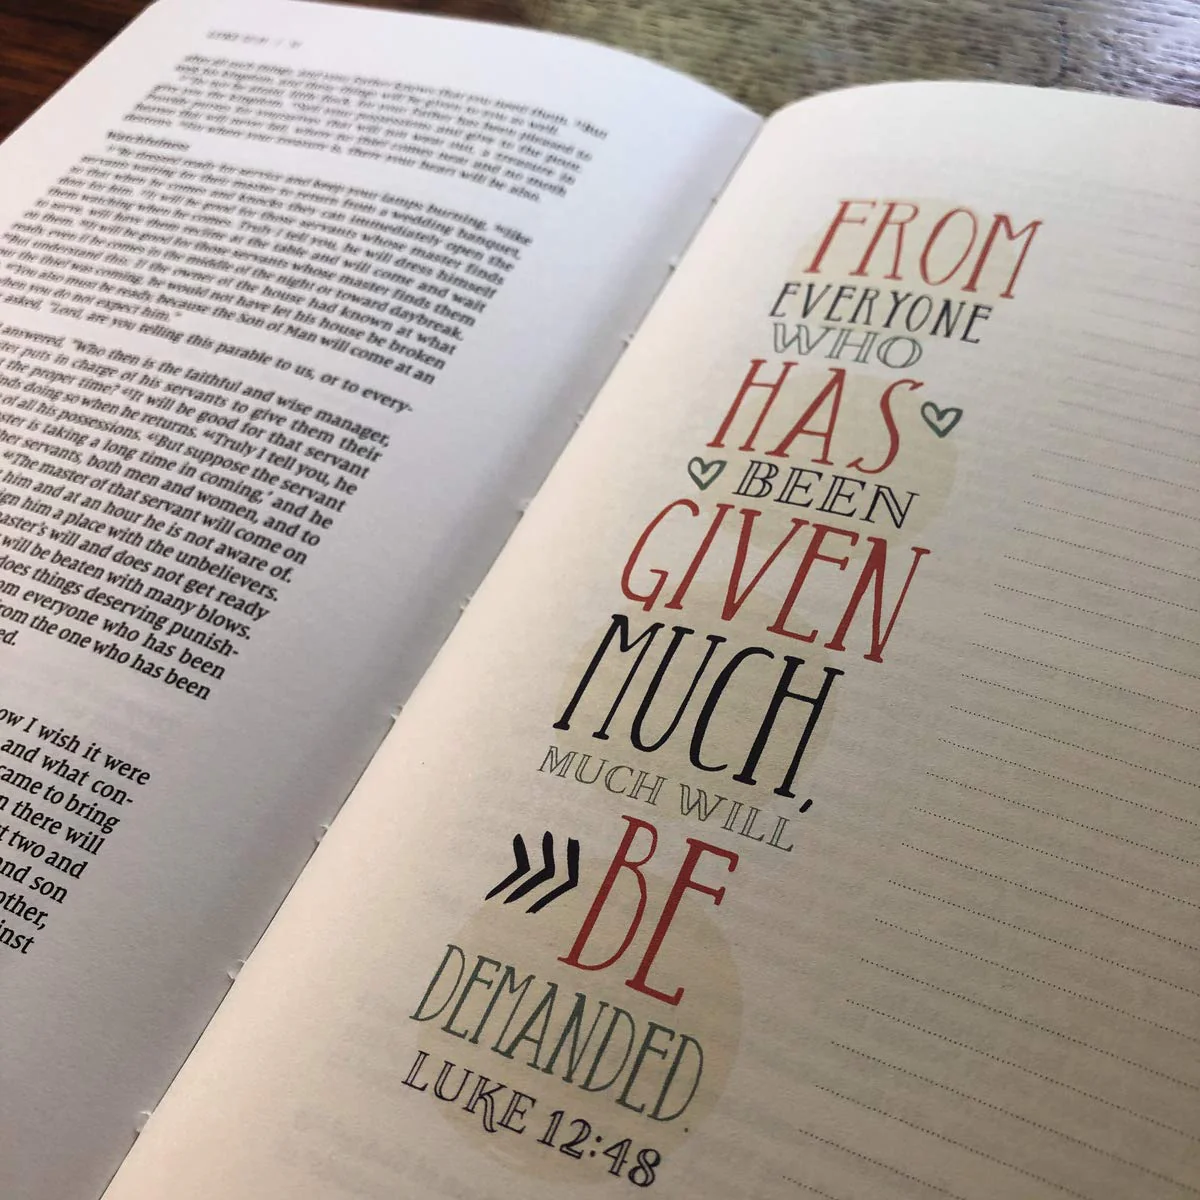 after all such things, and your Father knows that you need them. ³¹But
seek his kingdom, and these things will be given to you as well.
³²"Do not be afraid, little flock, for your Father has been pleased to
give you the kingdom. ³³Sell your possessions and give to the poor.
Provide purses for yourselves that will not wear out, a treasure in
heaven that will never fail, where no thief comes near and no moth
destroys. ³⁴For where your treasure is, there your heart will be also.
Watchfulness
³⁵"Be dressed ready for service and keep your lamps burning, ³⁶like
servants waiting for their master to return from a wedding banquet,
so that when he comes and knocks they can immediately open the
door for him. ³⁷It will be good for those servants whose master finds
them watching when he comes. Truly I tell you, he will dress himself
to serve, will have them recline at the table and will come and wait
on them. ³⁸It will be good for those servants whose master finds them
ready, even if he comes in the middle of the night or toward daybreak.
But understand this: If the owner of the house had known at what
the thief was coming, he would not have let his house be broken
"You also must be ready, because the Son of Man will come at an
when you do not expect him."
asked, "Lord, are you telling this parable to us, or to every-
answered, "Who then is the faithful and wise manager,
puts in charge of his servants to give them their
the proper time? ⁴³It will be good for that servant
finds doing so when he returns. ⁴⁴Truly I tell you, he
of all his possessions. ⁴⁵But suppose the servant
is taking a long time in coming,' and he
other servants, both men and women, and to
⁴⁶The master of that servant will come on
him and at an hour he is not aware of.
him a place with the unbelievers.
master's will and does not get ready
will be beaten with many blows.
does things deserving punish-
everyone who has been
from the one who has been
ow I wish it were
and what con-
came to bring
there will
two and
and son
other,
inst
FROM
EVERYONE
WHO
HAS
BEEN
GIVEN
MUCH,
MUCH WILL
BE
DEMANDED.
LUKE 12:48